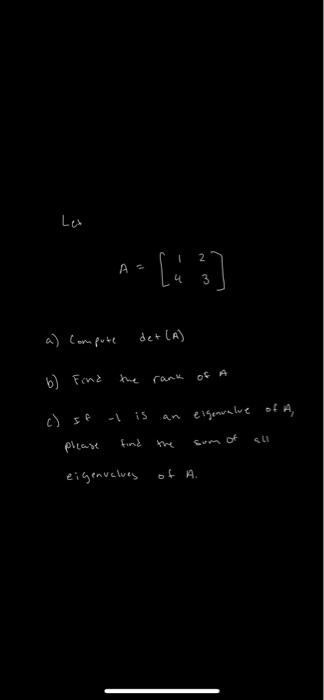 Let
A = [ 1 2
4 3 ]
a) Compute det(A)
b) Find the rank of A
c) If -1 is an eigenvalue of A,
please find the sum of all
eigenvalues of A.